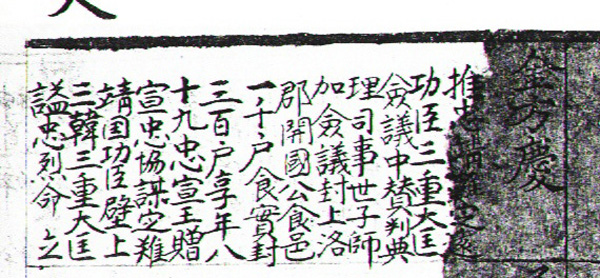 金方慶
推忠靖難定遠
功臣三重大匡
僉議中贊判典
理司事世子師
加僉議封上洛
郡開國公食邑
一千户食實封
三百户享年八
十九忠宣王贈
宣忠協謀定難
靖国功臣壁上
三韓三重大匡
謚忠烈命立